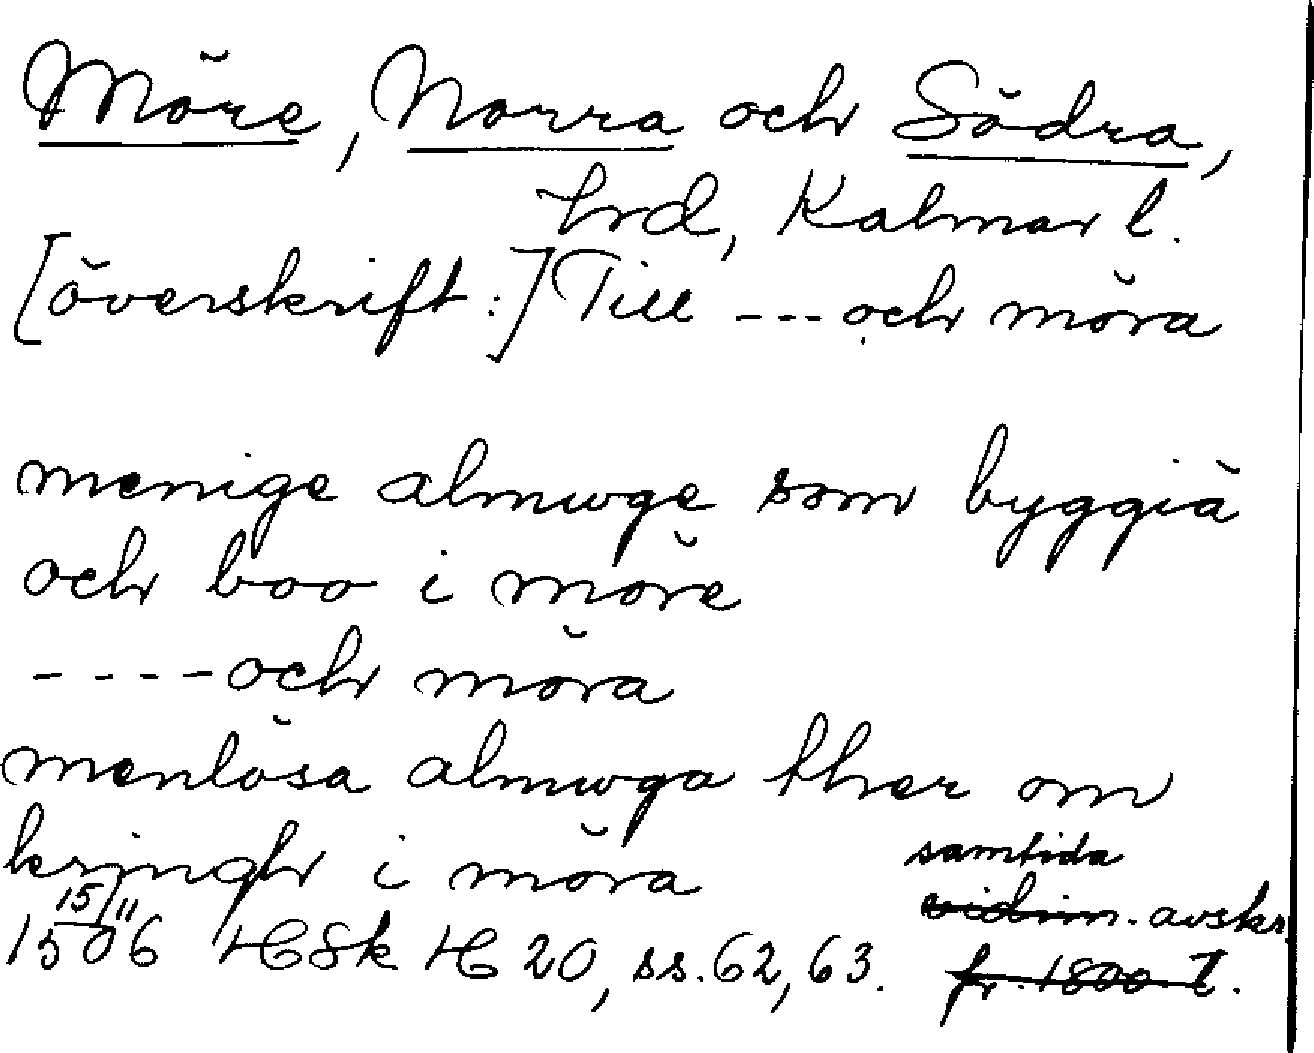 Möre, Norra och Södra,
hrd, Kalmar l.
[överskrift:] Till --- och möra
menige almwge som byggia
och boo i möre
---- och möra
menlösa almwga ther om
kringh i möra
samtida
15/11 vidim. avskr.
1506 HSk H 20, ss. 62, 63. fr. 1800-t.